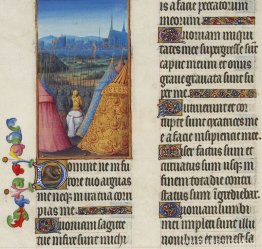 Domine ne in fu
rore tuo arguas
me neqz in ira tua corri
pias me.
Quoniam sagitte
tue infixe sunt michi
is a facie peccatorum
meorum.
Quoniam iniqui
tates mee supergresse sūt
caput meum et onus
graue grauata sunt su
per me.
Putruerunt et cor
rupte sunt cicatrices me
e a facie insipientie mee.
Miser factus sum et
curuatus sum usqz in
finem tota die contri
status ingrediebar.
Quoniam lumbi
mei impleti sunt illu
sionibus et non est sani